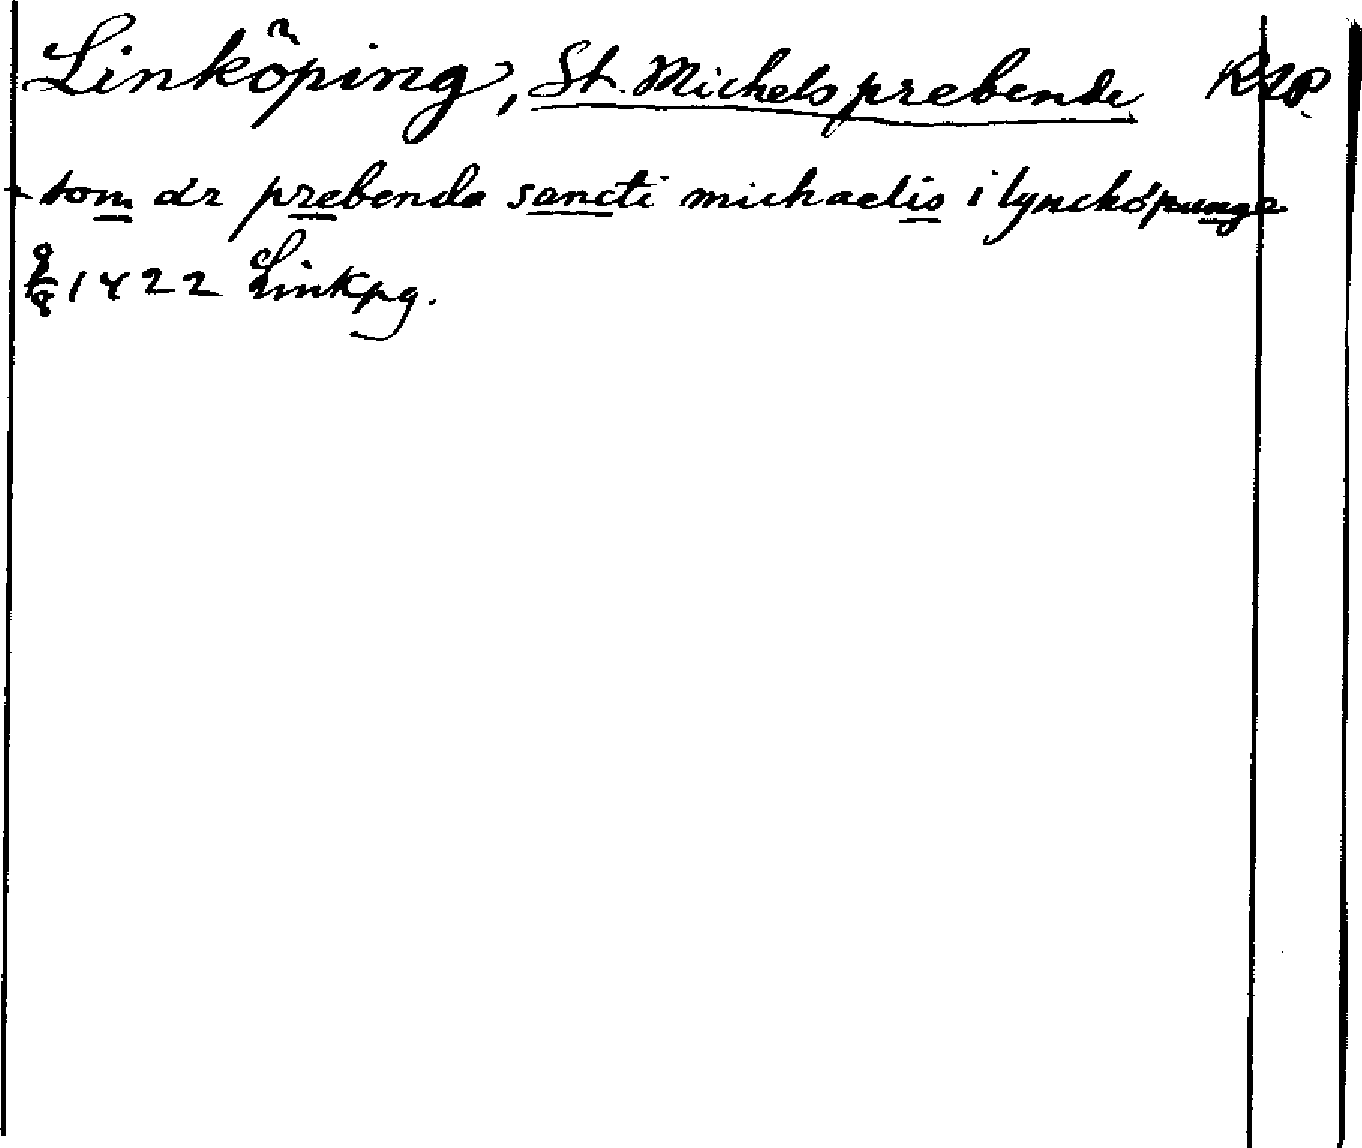 Linköping, St. Michels prebende RAP
- som ær prebenda sancti michaelis i lynchöpunge
8/8 1422 Linkpg.